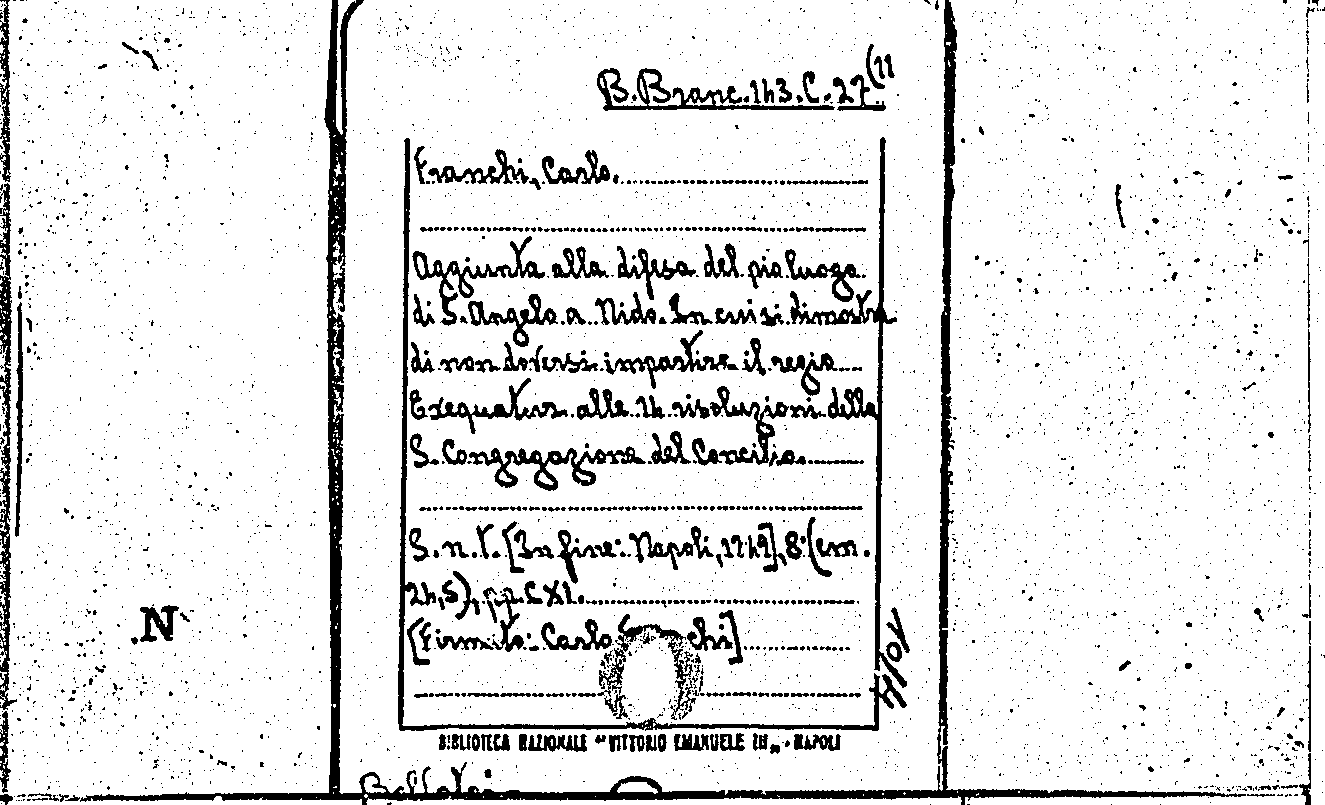 B. Branc. 143. C. 27 (11
Franchi, Carlo.
Aggiunta alla difesa del pio luogo
di S. Angelo a Nido. In cui si dimostra
di non doversi impartire il regio
Exequatur alle 14 risoluzioni della
S. Congregazione del Concilio.
S. n. t. [In fine: Napoli, 1749], 8° (cm.
24,5), pp. CXI.
[Firmato: Carlo Franchi]
BIBLIOTECA NAZIONALE "VITTORIO EMANUELE III" - NAPOLI
.N